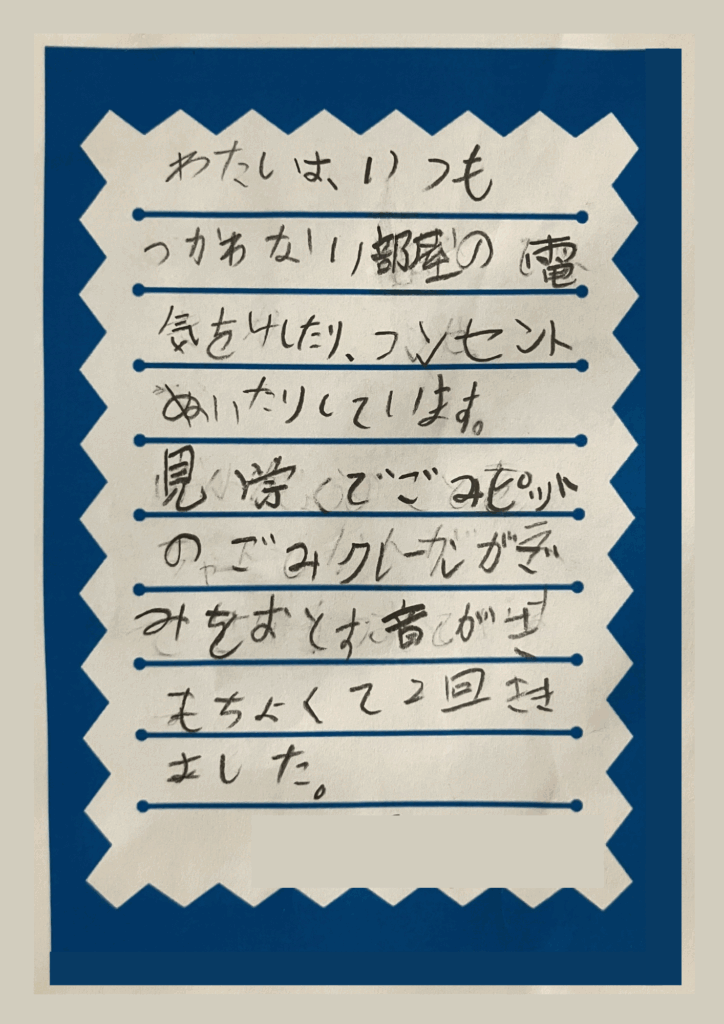 わたしは、いつも
つかわない部屋の電
気をけしたり、コンセント
ぬいたりしています。
見学でごみピット
のごみクレーンがご
みをおとす音がき
もちよくて2回きき
ました。